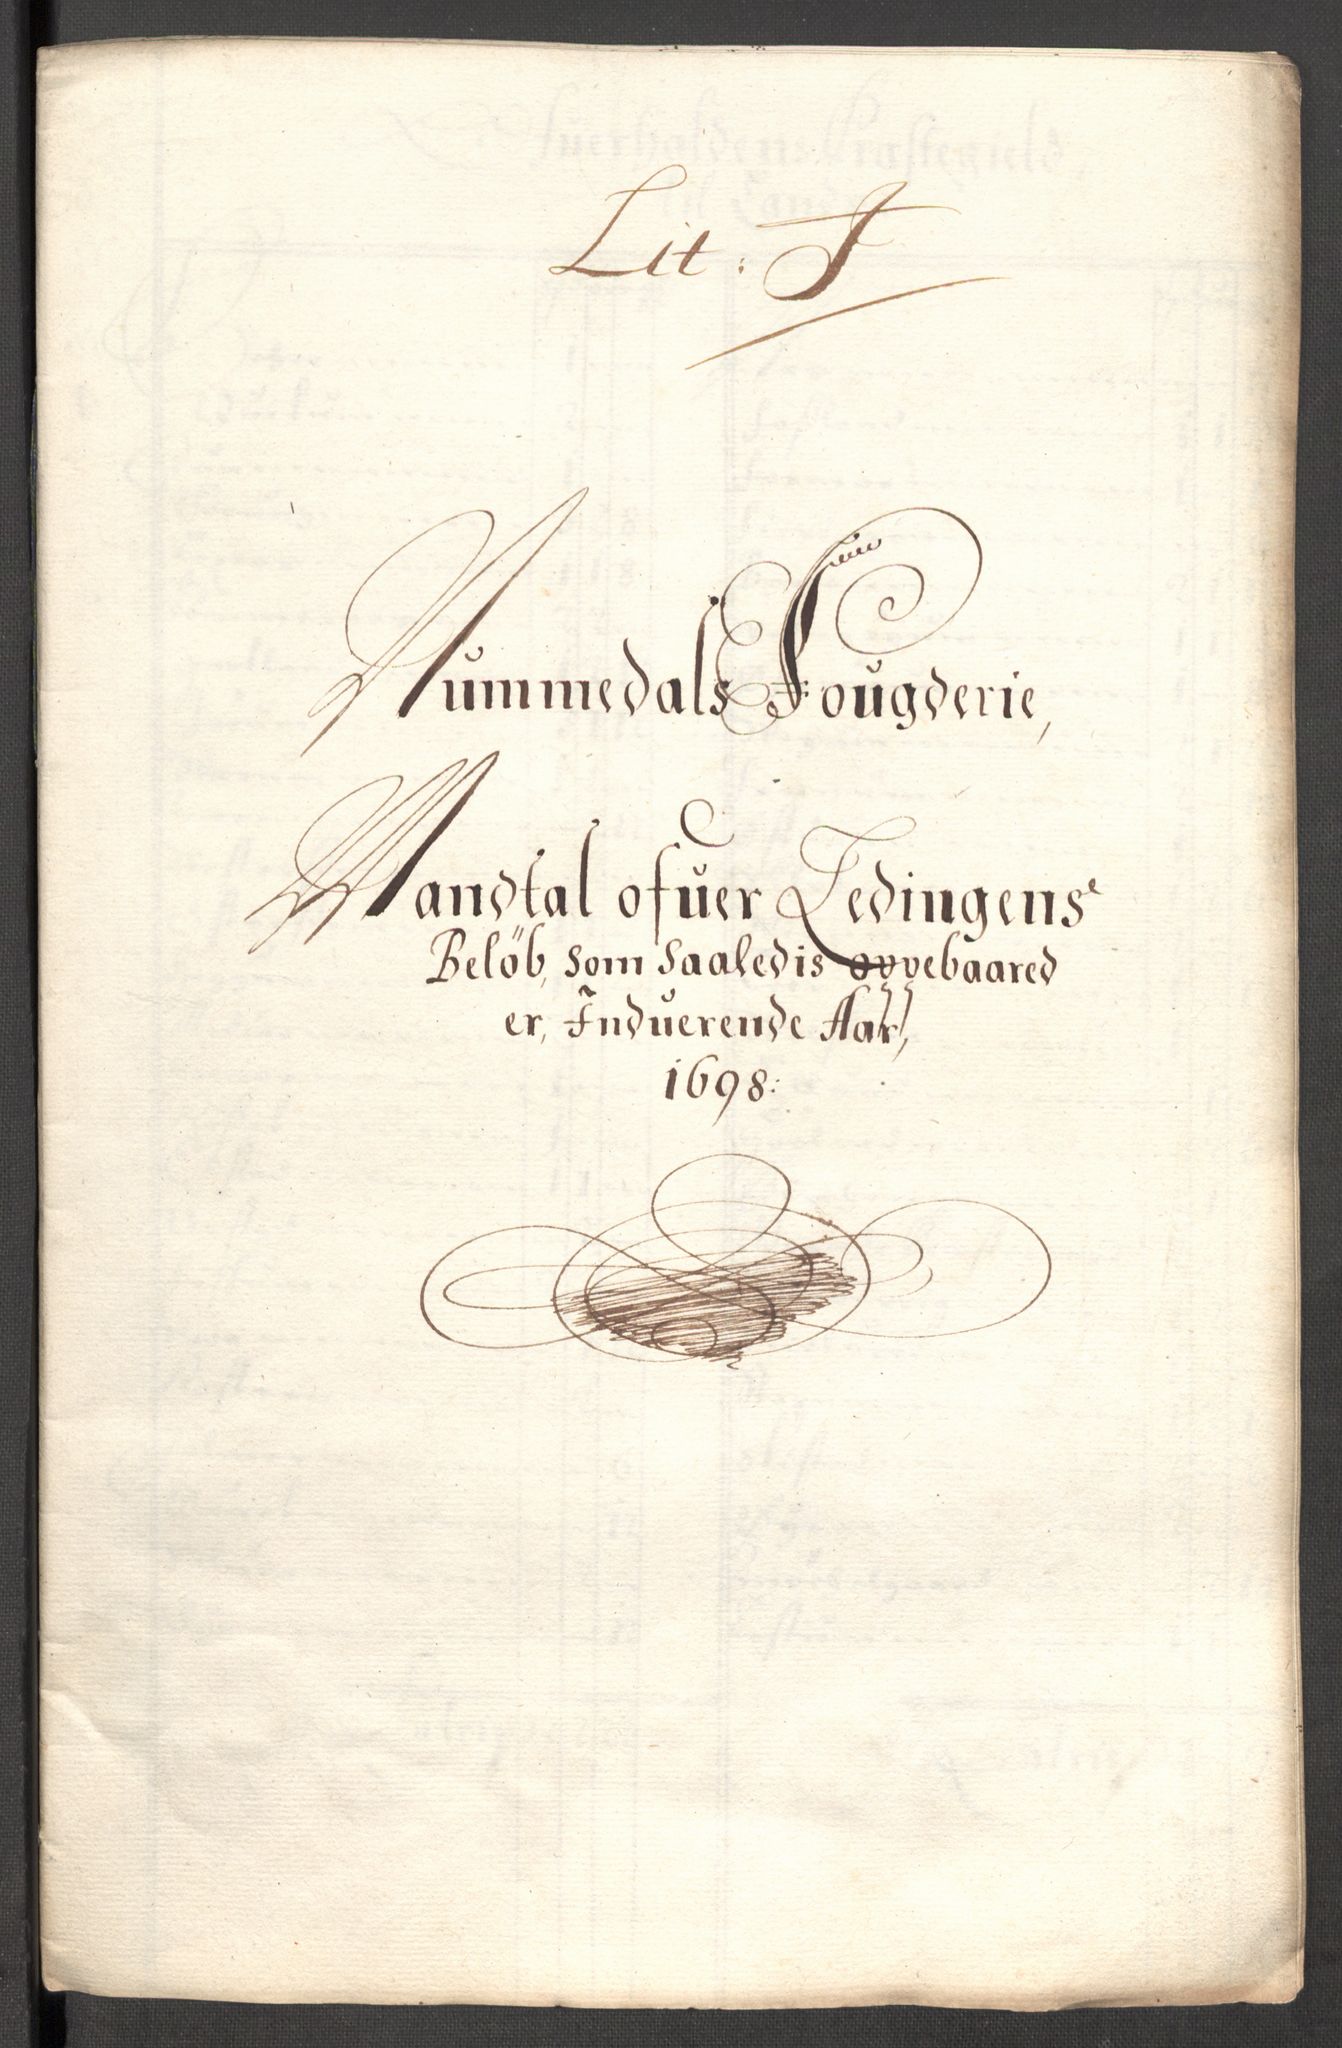 Lit: I
Nummedals Fougderie,
Mandtal ofuer Ledingens
Belöb, som saaledis oppebaared
er, Induerende Aar,
1698: